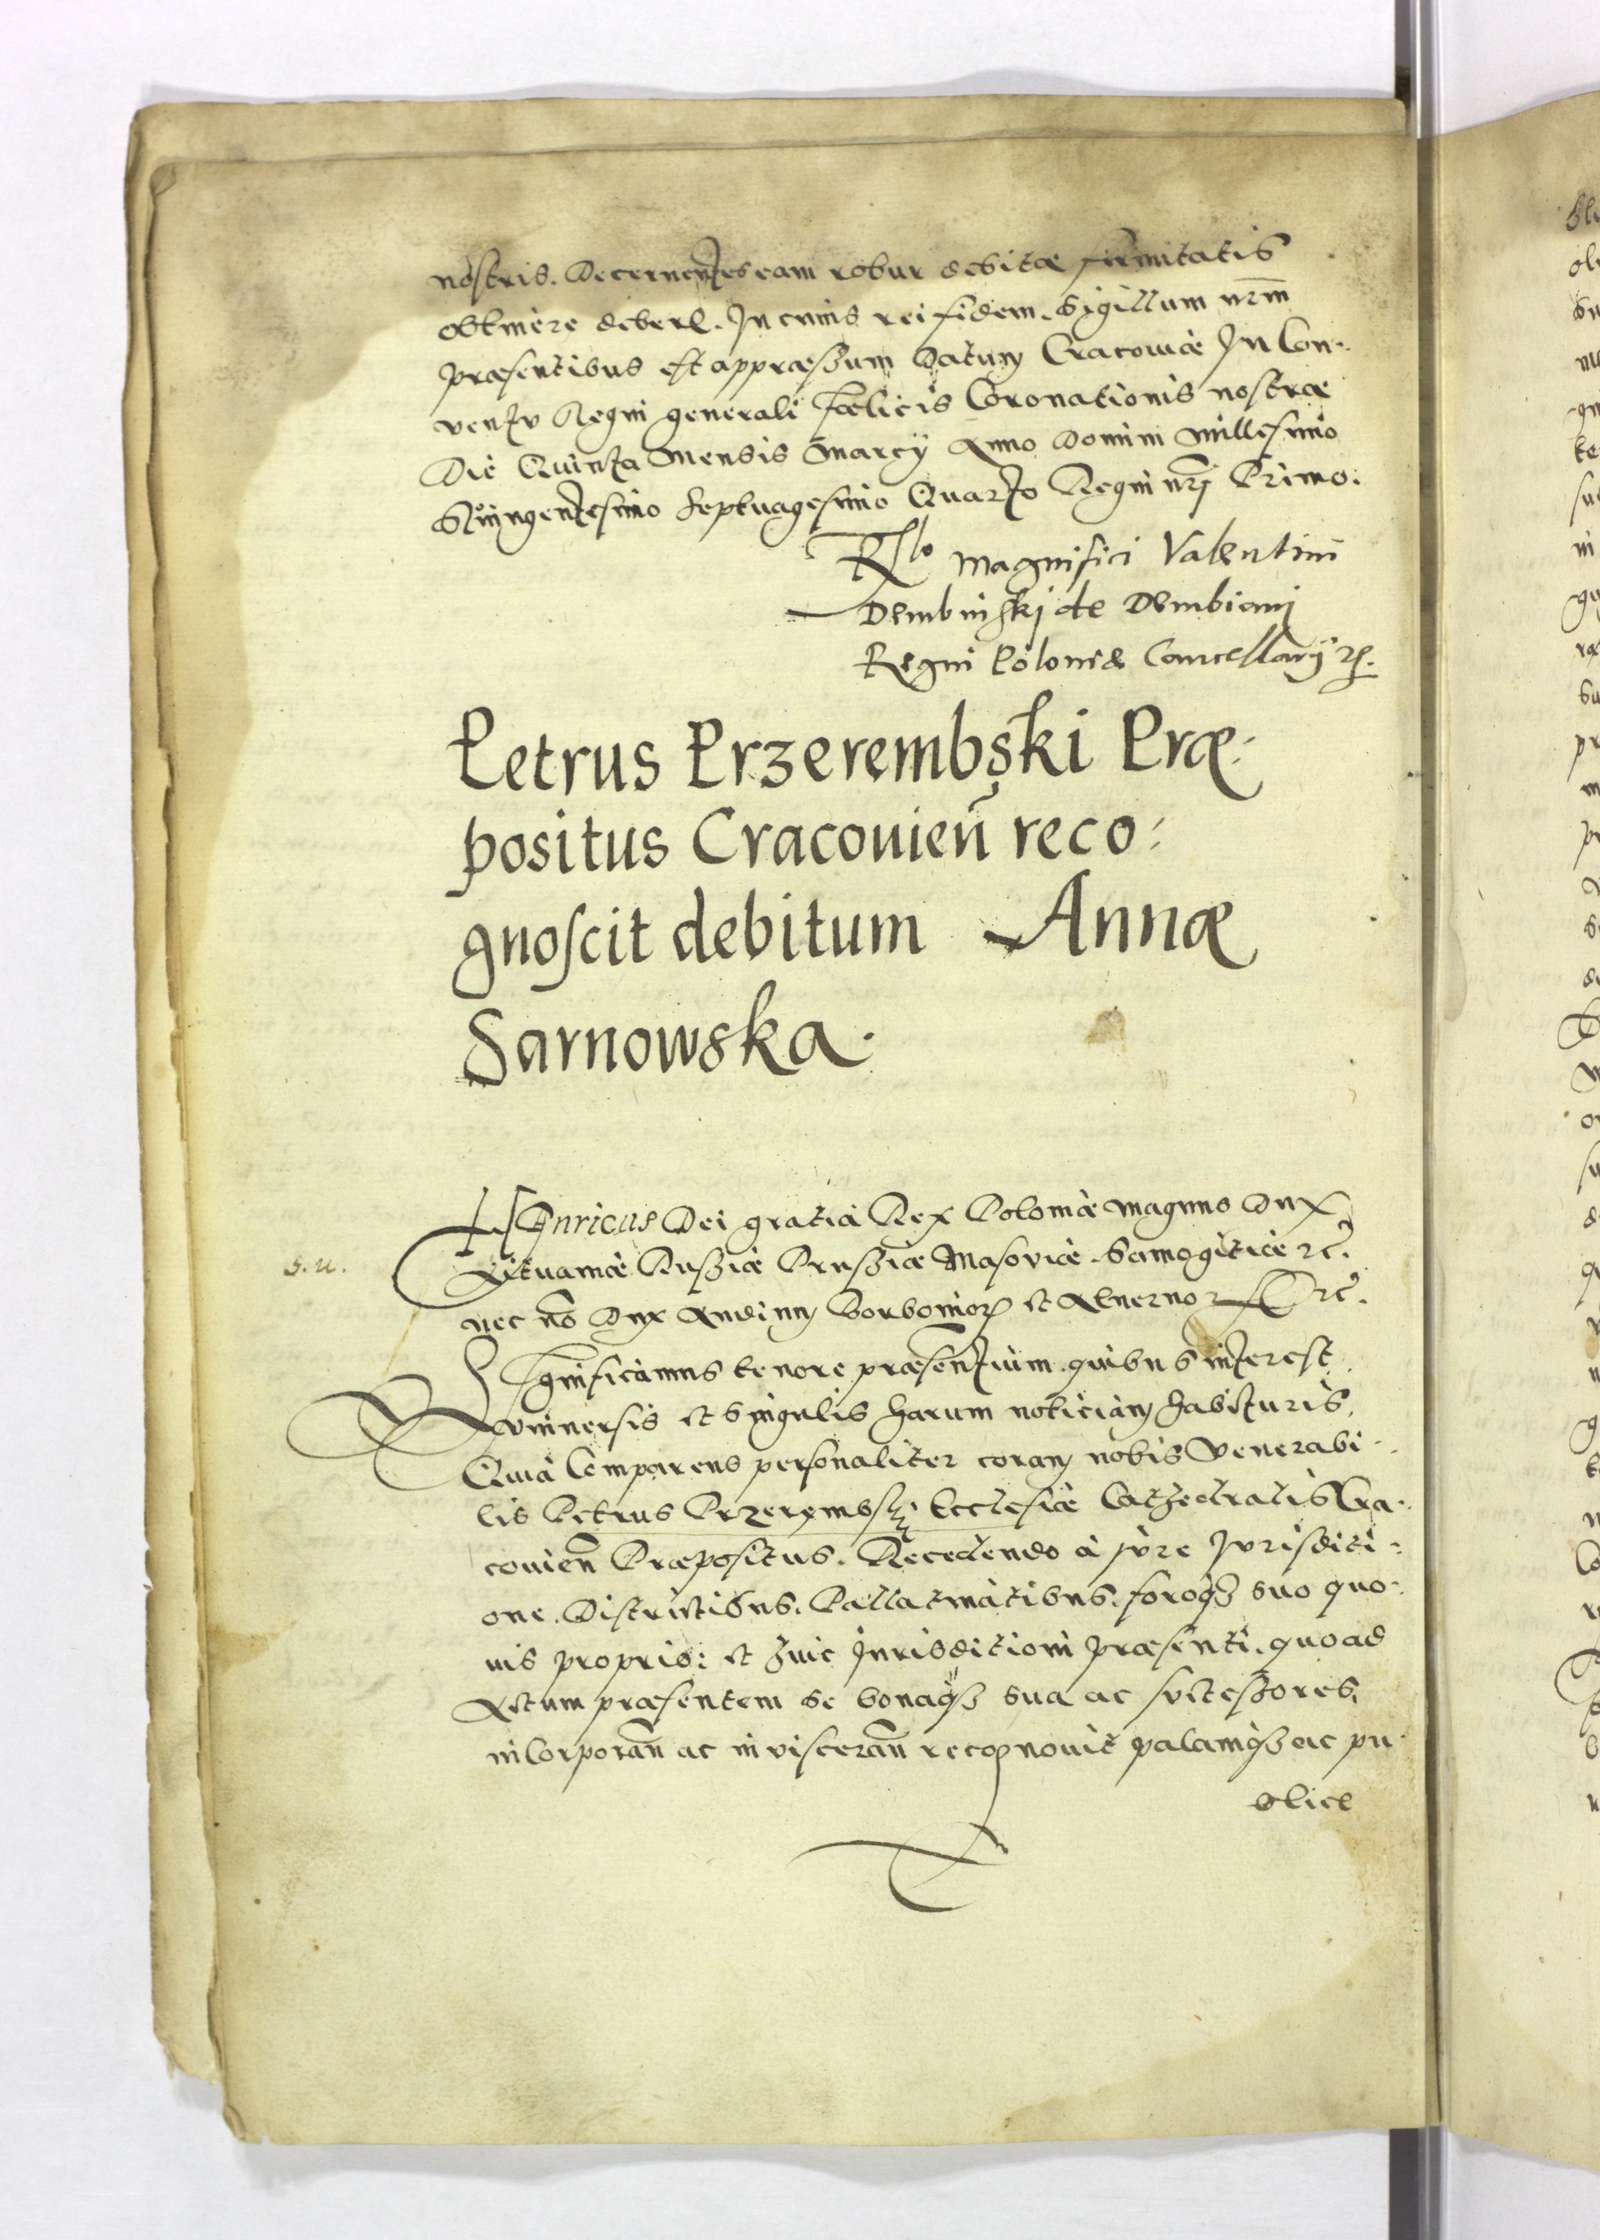 nostris. Decernentes eam robur debitæ firmitatis
obtinere debere. In cuius rei fidem. Sigillum nrm̄
præsentibus est appræssum Datum Cracoviæ In Con-
ventu Regni generali fælicis Coronationis nostræ
Die Quinta Mensis Marcÿ Anno Domini Millesimo
Quingentesimo Septuagesimo Quarto Regni nrj Primo.
Rlo Magnifici Valentini
Dembinskj de Dembianj
Regni Poloniæ Cancellarÿ
Petrus Przerembski Præ-
positus Cracovien̄ reco-
gnoscit debitum Annæ
Sarnowska.
HEnricus Dei gratia Rex Poloniæ Magnus Dux
s. u.
Lituaniæ Russiæ Prussiæ Masoviæ. Samogitiæ etc.
nec nō Dux Andium Borboniorum et Alvernorum etc.
Significamus tenore præsentium. quibus interest
vniversis et singulis harum noticiam habituris.
Quia Comparens personaliter coram nobis Venerabi-
lis Petrus Przerembski Ecclesiæ Cathedralis Cra-
covien̄ Præpositus. Recedendo à jure Jurisditi-
one. Districtibus. Pallatinatibus. foroqȝ suo quo-
vis proprio: et huic Jurisditioni præsenti. quoad
Actum præsentem se bonaqȝ sua ac successores.
inCorporan̄ ac inviscerān recognovit palamqȝ ac pu-
blice